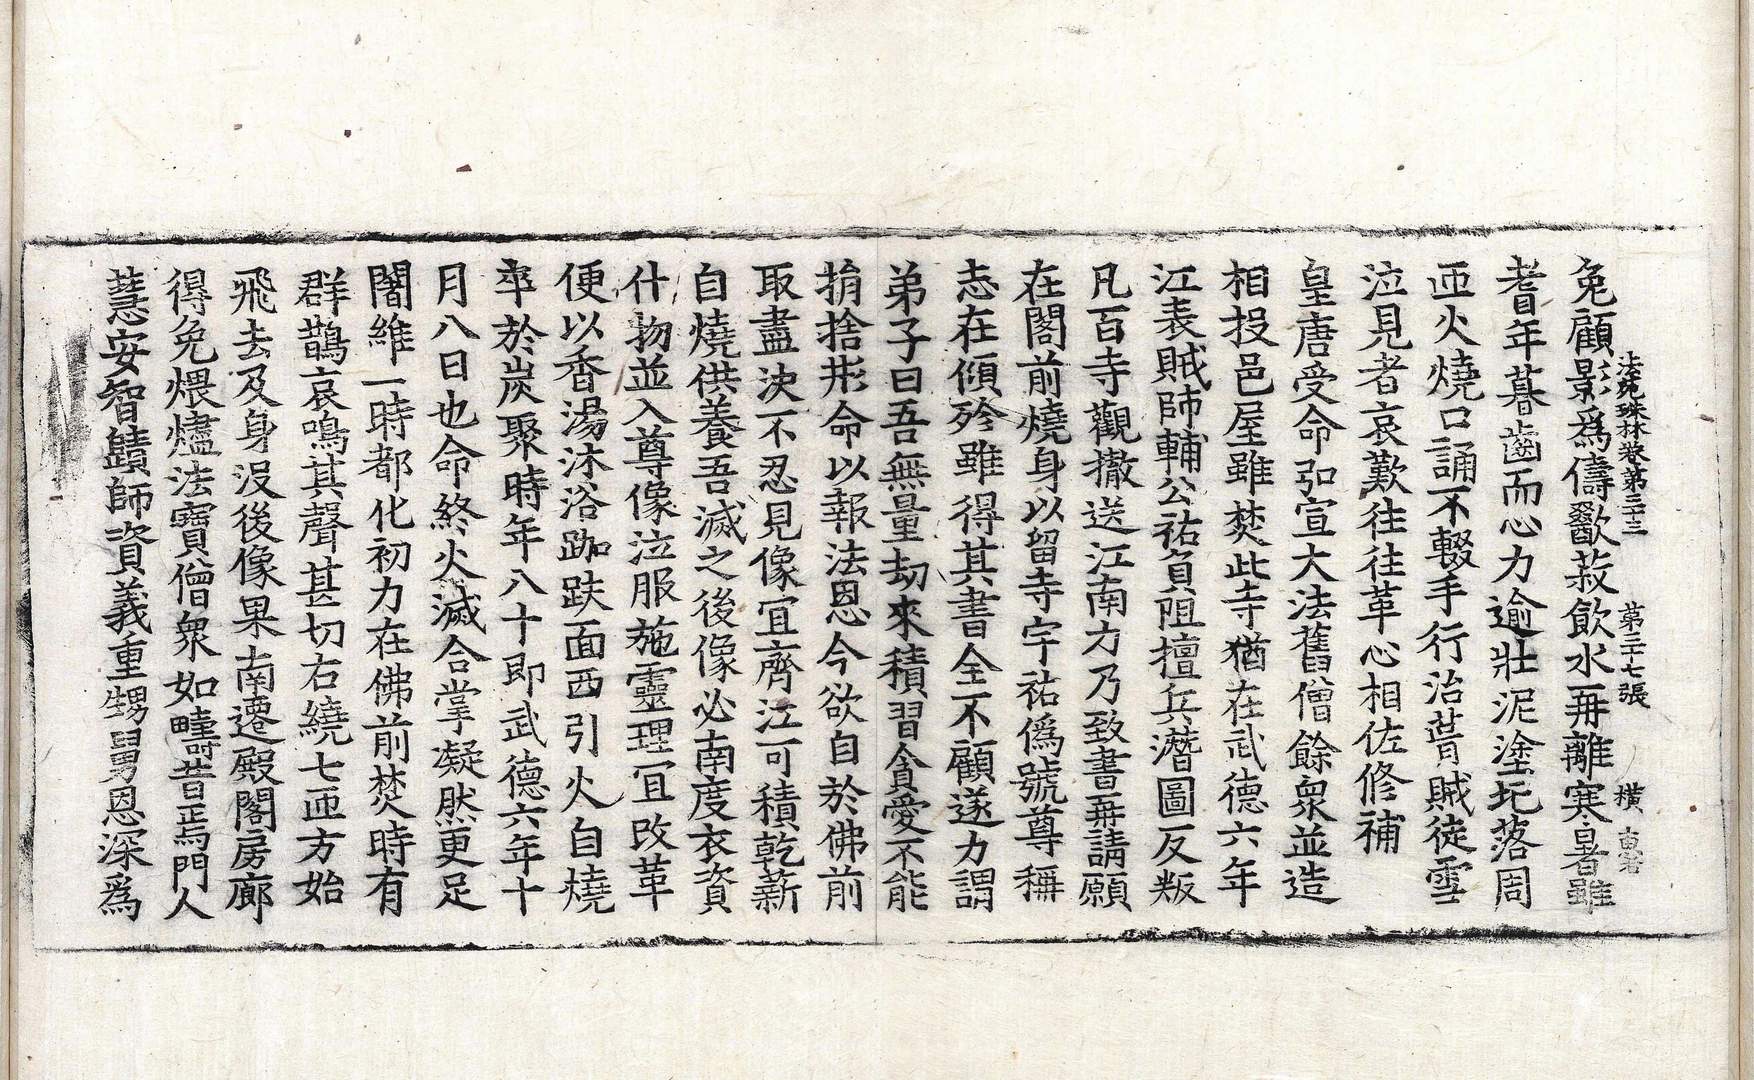 法苑珠林卷第三十三 第三十七張 橫
免顧影爲儔歠菽飲水再離寒暑雖
耆年暮齒而心力逾壯泥塗圮落周
匝火燒口誦不輟手行治葺賊徒雪
泣見者哀歎往往革心相佐修補
皇唐受命弘宣大法舊僧餘衆並造
相投邑屋雖焚此寺猶在武德六年
江表賊師輔公祐負阻擅兵潛圖反叛
凡百寺觀撤送江南力乃致書再請願
在閣前燒身以留寺宇祐僞號尊稱
志在傾殄雖得其書全不顧遂力謂
弟子曰吾無量劫來積習貪愛不能
捐捨形命以報法恩今欲自於佛前
取盡決不忍見像冝齊江可積乾薪
自燒供養吾滅之後像必南度衣資
什物並入尊像泣服施靈理冝改革
便以香湯沐浴跏趺面西引火自燒
卒於炭聚時年八十即武德六年十
月八日也命終火滅合掌凝然更足
闍維一時都化初力在佛前焚時有
群鵲哀鳴其聲甚切右繞七匝方始
飛去及身沒後像果南遷殿閣房廊
得免煨燼法寶僧衆如疇昔焉門人
慧安智賾師資義重甥舅恩深爲